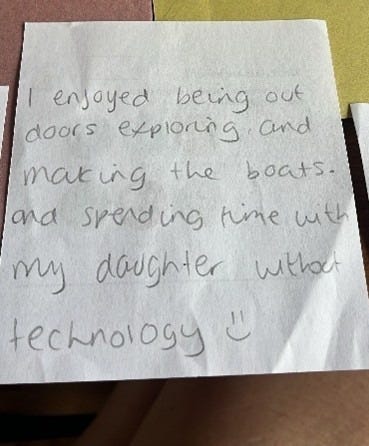 I enjoyed being out
doors exploring and
making the boats.
and spending time with
my daughter without
technology :)